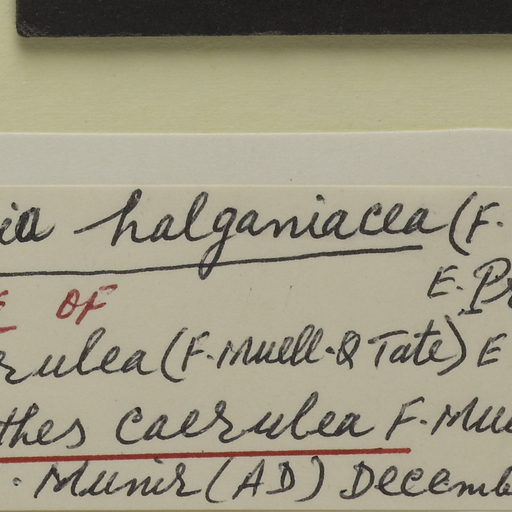 ia halganiacea (F.
E. Pr
OF
rulea (F. Muell. & Tate) E
thes caerulea F. Mue
. Munir (AD) Decemb